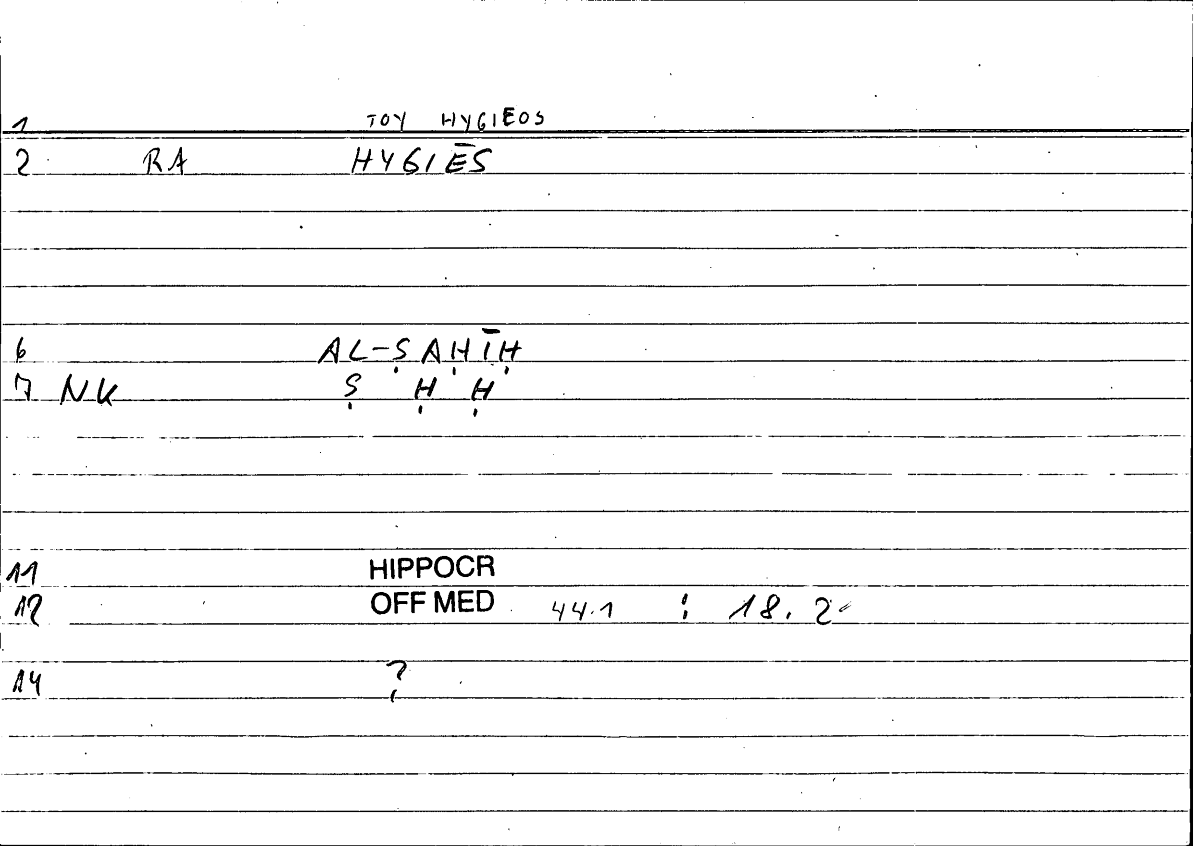 1 TOY HYGIEOS
2 RA HYGIĒS
6 AL-ṢAḤĪḤ
7 NK Ṣ Ḥ Ḥ
11 HIPPOCR
12 OFF MED 44.1 : 18.2
14 ?